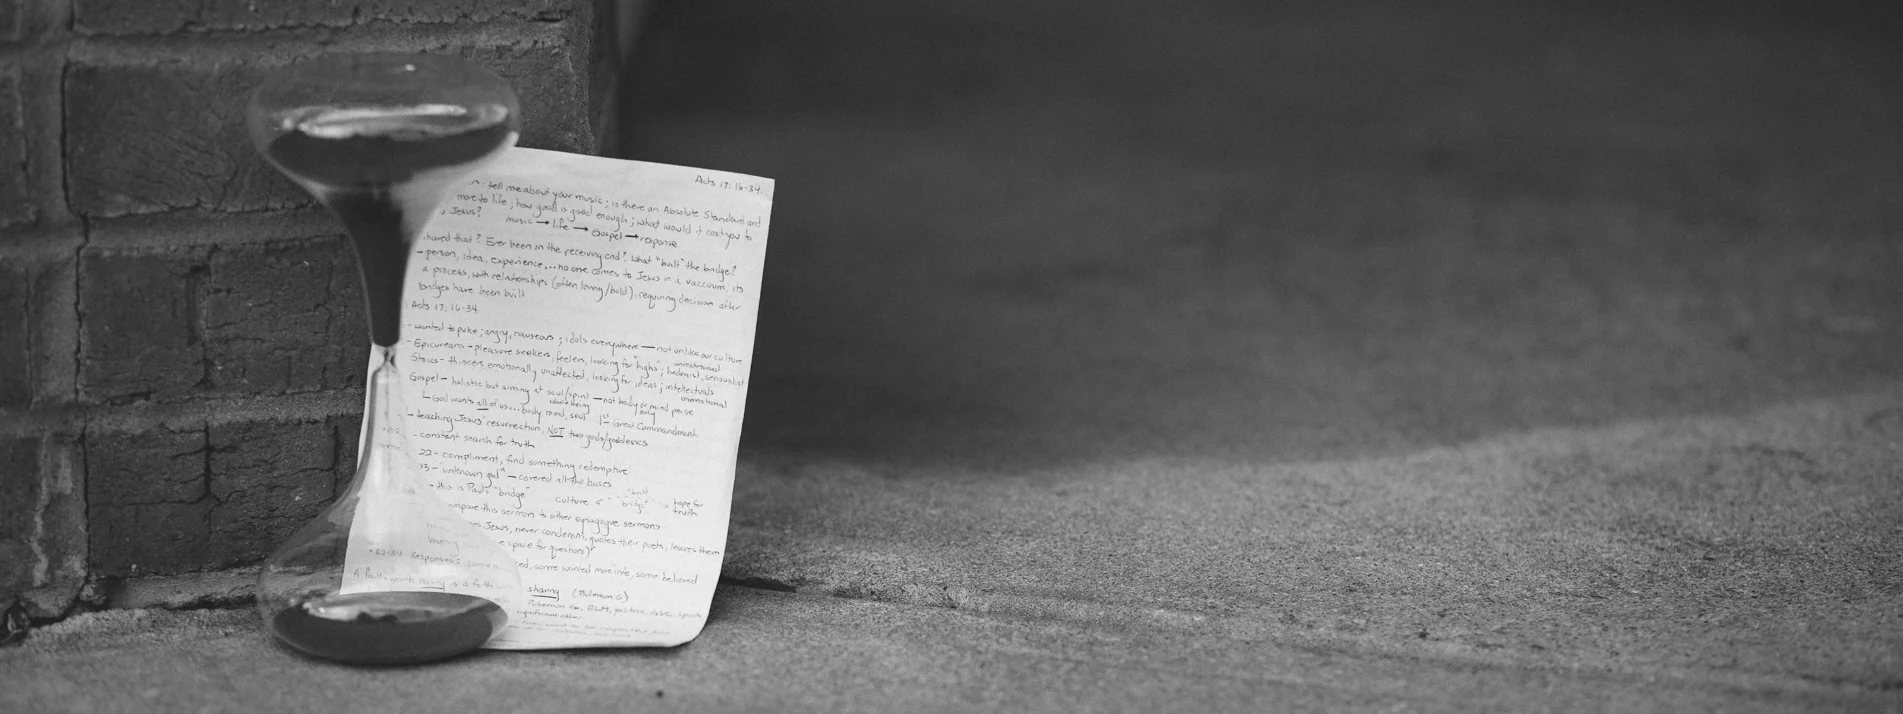 Acts 17: 16-34
tell me about your music; is there an Absolute Standard and
more to life; how good is good enough; what would it cost you to
Jesus?
music → life → Gospel → response
that? Ever been on the receiving end? What "built" the bridge?
- person, idea, experience... no one comes to Jesus in a vaccuum; its
a process, with relationships (often loving/bold), requiring decision after
bridges have been built
Acts 17: 16-34
- wanted to puke; angry, nauseous; idols everywhere — not unlike our culture
- Epicureans - pleasure seekers, feelers, looking for "highs"; unrestrained hedonist, sensualist
Stoics - thinkers, emotionally unaffected, looking for ideas; intellectuals
unemotional
Gospel - holistic but aiming at soul/spirit — not body or mind per se
whole being only
God wants all of us... body, mind, soul 1st Commandment
- teaching Jesus' resurrection, NOT two gods/goddesses
- constant search for truth
22 - compliment, find something redemptive
23 - "unknown god" — covered all the bases
- this is Paul's "bridge" culture bridge hope for
truth
this sermon to other synagogue sermons
Jesus, never condemns, quotes their poets, leaves them
space for questions)
Responses: some wanted more info, some believed
A Faith worth having is a faith sharing (Philemon 6)